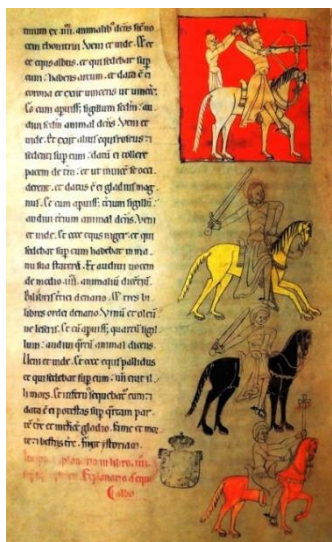 unum ex .iiii. animalib' dicens sic uo
cem thonitrui. Veni et uide. Et ec
ce equs albus. et qui sedebat sup
eum: habens arcum. et data e ei
corona et exiit uincens ut uincer&.
Et cum apuiss& sigillum scdm: au
diui scdm animal dicens. Veni et
uide. Et exiit alius equs
sedenti sup eum: datu e ut tolleret
pacem de tra: et ut inuice se occi
derent. et datus e ei gladius mag
nus. Et cum apuiss& tercium sigillu:
audiui tercium animal dicens. Veni
et uide. Et ecce equs niger: et qui
sedebat sup eum habebat in ma
nu sua stateram. Et audiui uocem
de medio .iiii. animaliu dicentiu.
Bilibris tritici denario. Et tres bi
libres ordei denario. Vinu et oleu
ne leseris. Et cu apuiss& quartu sigil
lum: audiui quarti animal dicens.
Veni et uide. Et ecce equs pallidus
et qui sedebat sup eum: nomen erat il
li mors. Et infern sequebat eum: et
data e ei potestas sup quartam par
te tre et int'ficere gladio. fame et mor
te: et bestiis tre.
in libro .iiii.
Explanatio